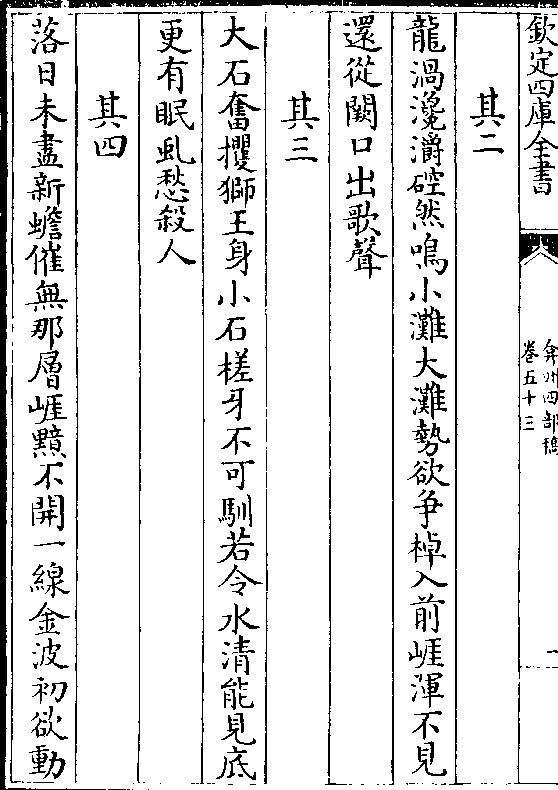 欽定四庫全書
弇州四部稿
卷五十三
一
其二
龍渦灧灂硿然鳴小灘大灘勢欲爭棹入前崕渾不見
還從闕口出歌聲
其三
大石奮攫獅王身小石槎牙不可馴若令水清能見底
更有眠虬愁殺人
其四
落日未盡新蟾催無那層崕黯不開一線金波初欲動